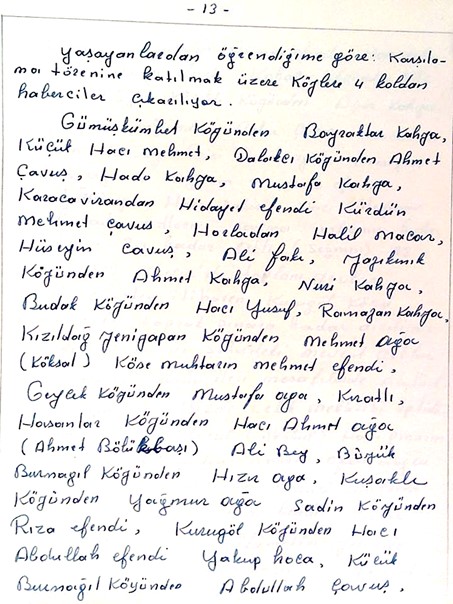 - 13 -
Yaşayanlardan öğrendiğime göre: Karşıla-
ma törenine katılmak üzere Köğlere 4 koldan
haberciler çıkarılıyor.
Gümüşkümbet Köğünden Bayraktar Kahga,
Küçük Hacı Mehmet, Dalakcı Köğünden Ahmet
Çavuş, Hado Kahga, Mustafa Kahga,
Karacavirandan Hidayet efendi Kürdün
Mehmet Çavuş, Harladan Halil Macar,
Hüseyin Çavuş, Ali fakı, Yazıkınık
Köğünden Ahmet Kahga, Nuri Kahga,
Budak Köğünden Hacı Yusuf, Ramazan Kahga,
Kızıldağ Yenigapan Köğünden Mehmet ağa
(Köksal) Köse muhtarın mehmet efendi,
Geycek Köğünden Mustafa aga, Kıratlı,
Hasanlar Köğünden Hacı Ahmet ağa
(Ahmet Bölükbaşı) Ali Bey, Büğük
Burnagıl Köğünden Hızır aga, Kuşaklı
Köğünden Yağmur ağa Sadin Köyünden
Rıza efendi, Kurugöl Köğünden Hacı
Abdullah efendi Yakup hoca, Küçük
Burnağıl Köyünden Abdullah Çavuş,